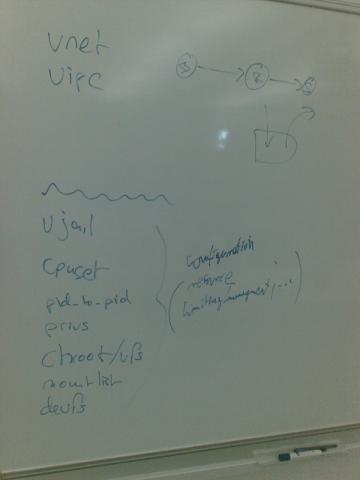 vnet
vipc
S
S
vjail
cpuset
pid_to_pid
privs
chroot/vfs
mountlist
devfs
configuration
resource
(limiting management, ...)